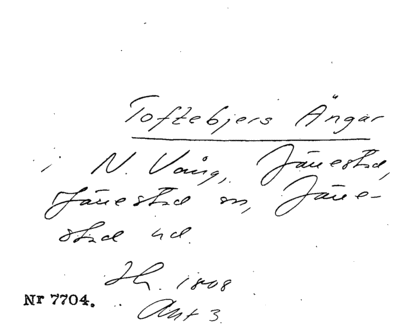 Toftebjers Ängar
i N. Vång, Jänestad,
Jänestad sn, Jäne-
stad hd.
Jh. 1808
Akt 3
Nr 7704.